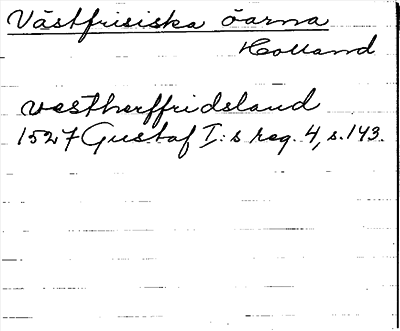 Västfrisiska öarna
Holland
vestherffridsland
1527 Gustaf I:s reg. 4, s. 143.